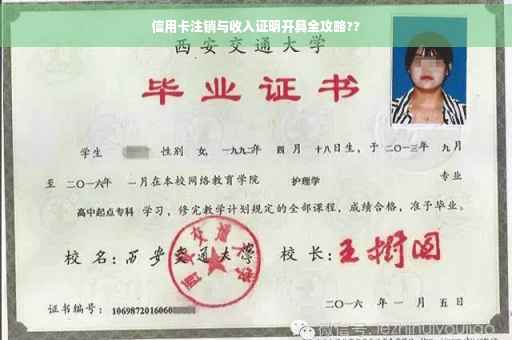 信用卡注销与收入证明开具全攻略??
西安交通大学
毕业证书
学生 性别 女, 一九九二年 四月 十八日生, 于 二〇一三年 九月
至 二〇一六年 一月在本校网络教育学院 护理学 专业
高中起点专科 学习, 修完教学计划规定的全部课程, 成绩合格, 准予毕业。
校 名: 西安交通大学 校 长: 王树国
西安交通大学
证书编号: 1069872016060
二〇一六 年 一 月 五 日
微信号: jezhihuiyoujiao